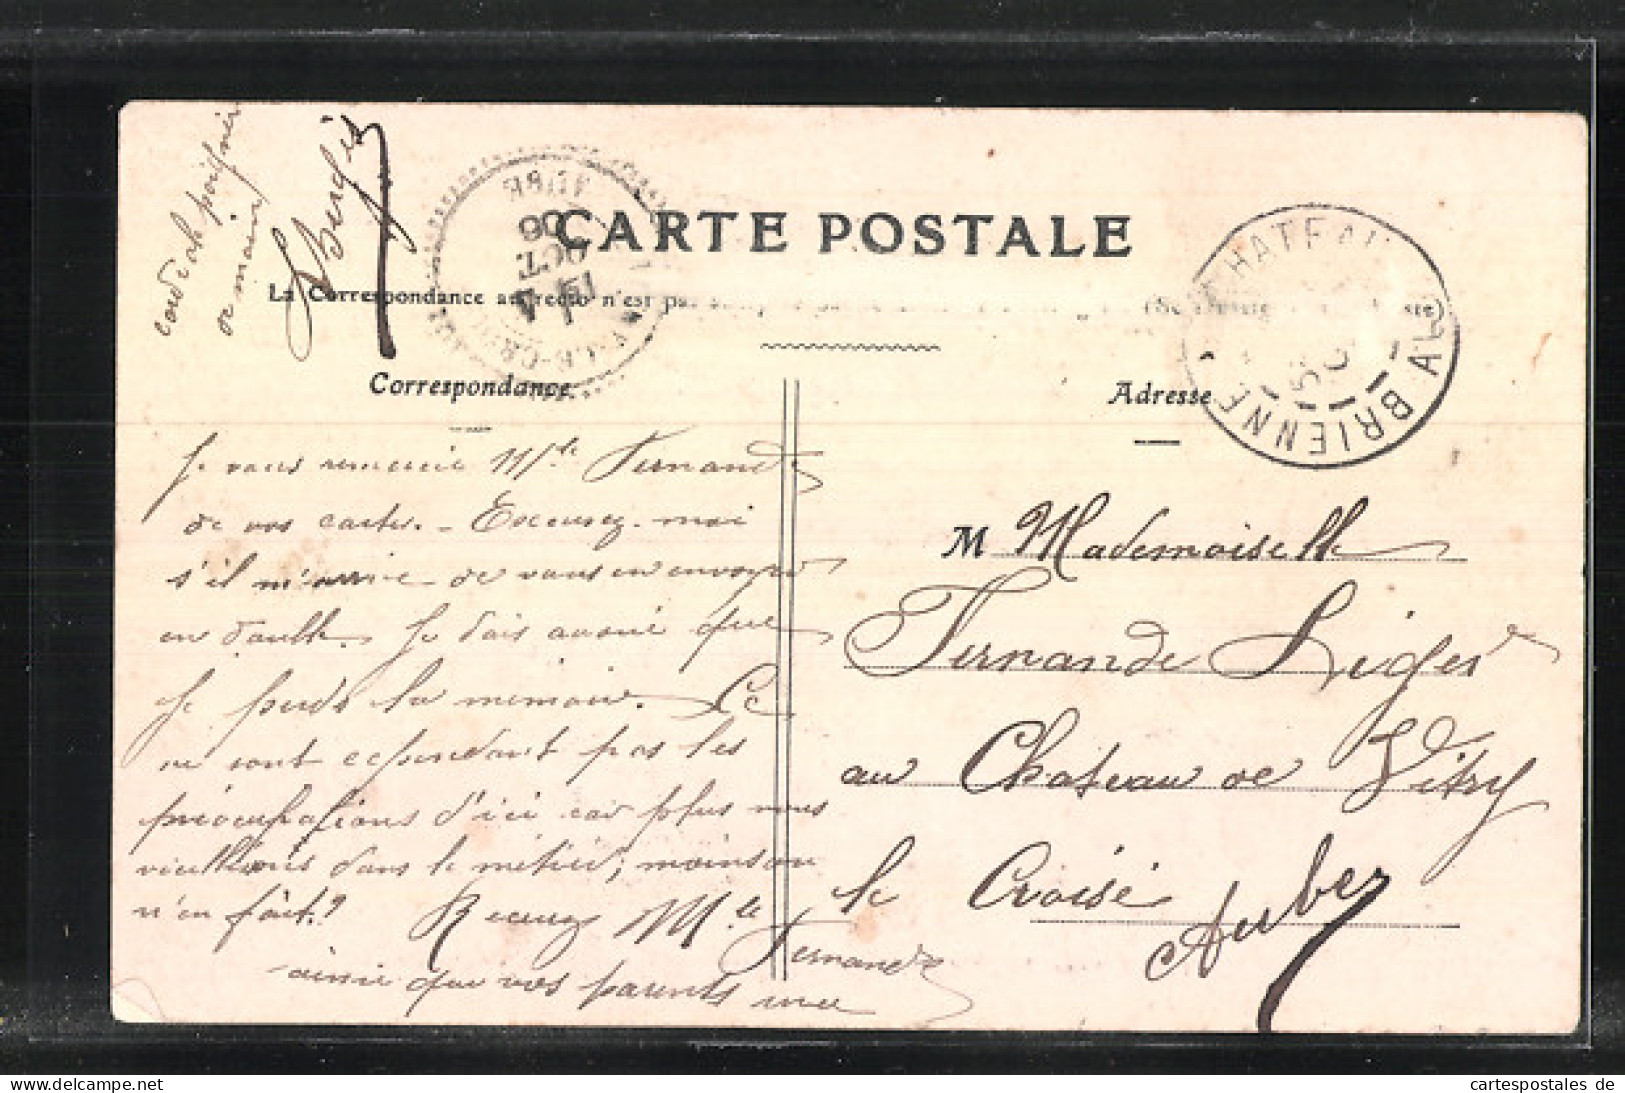 CARTE POSTALE
La Correspondance au recto n'est pas
Correspondance
Adresse
Je vous remercie Mlle Fernande
de vos cartes. - Excusez-moi
s'il m'arrive de vous en envoyer
en double. Je dois avouer que
je perds la mémoire. Ce
ne sont cependant pas les
préoccupations d'ici car plus nous
vieillissons dans le métier, moins on
n'en fait.? Recevez Mlle
Fernande
ainsi que vos parents une
cordiale poignée
de main
M Mademoiselle
Fernande Liger
au Chateau de Vitry
le Croisé
Aube
AUBE
06
OCT.
CHATEAU
BRIENNE
cartespostales de